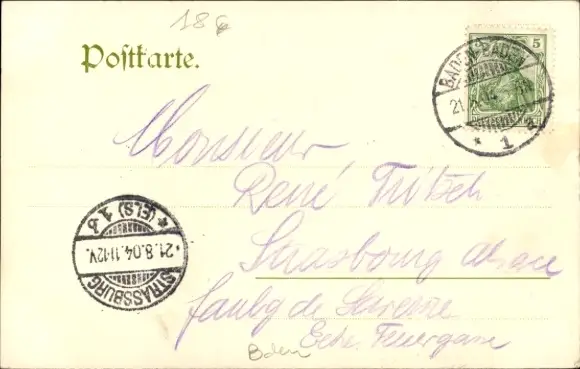 18
Postkarte.
5
BADEN-BADEN
21.
* 1
Monsieur
René Fritsch
Strasbourg Alsace
faubg de Saverne
Ecke
STRASSBURG
21.8.04.11-12V.
* (ELS) 1 b
Baden